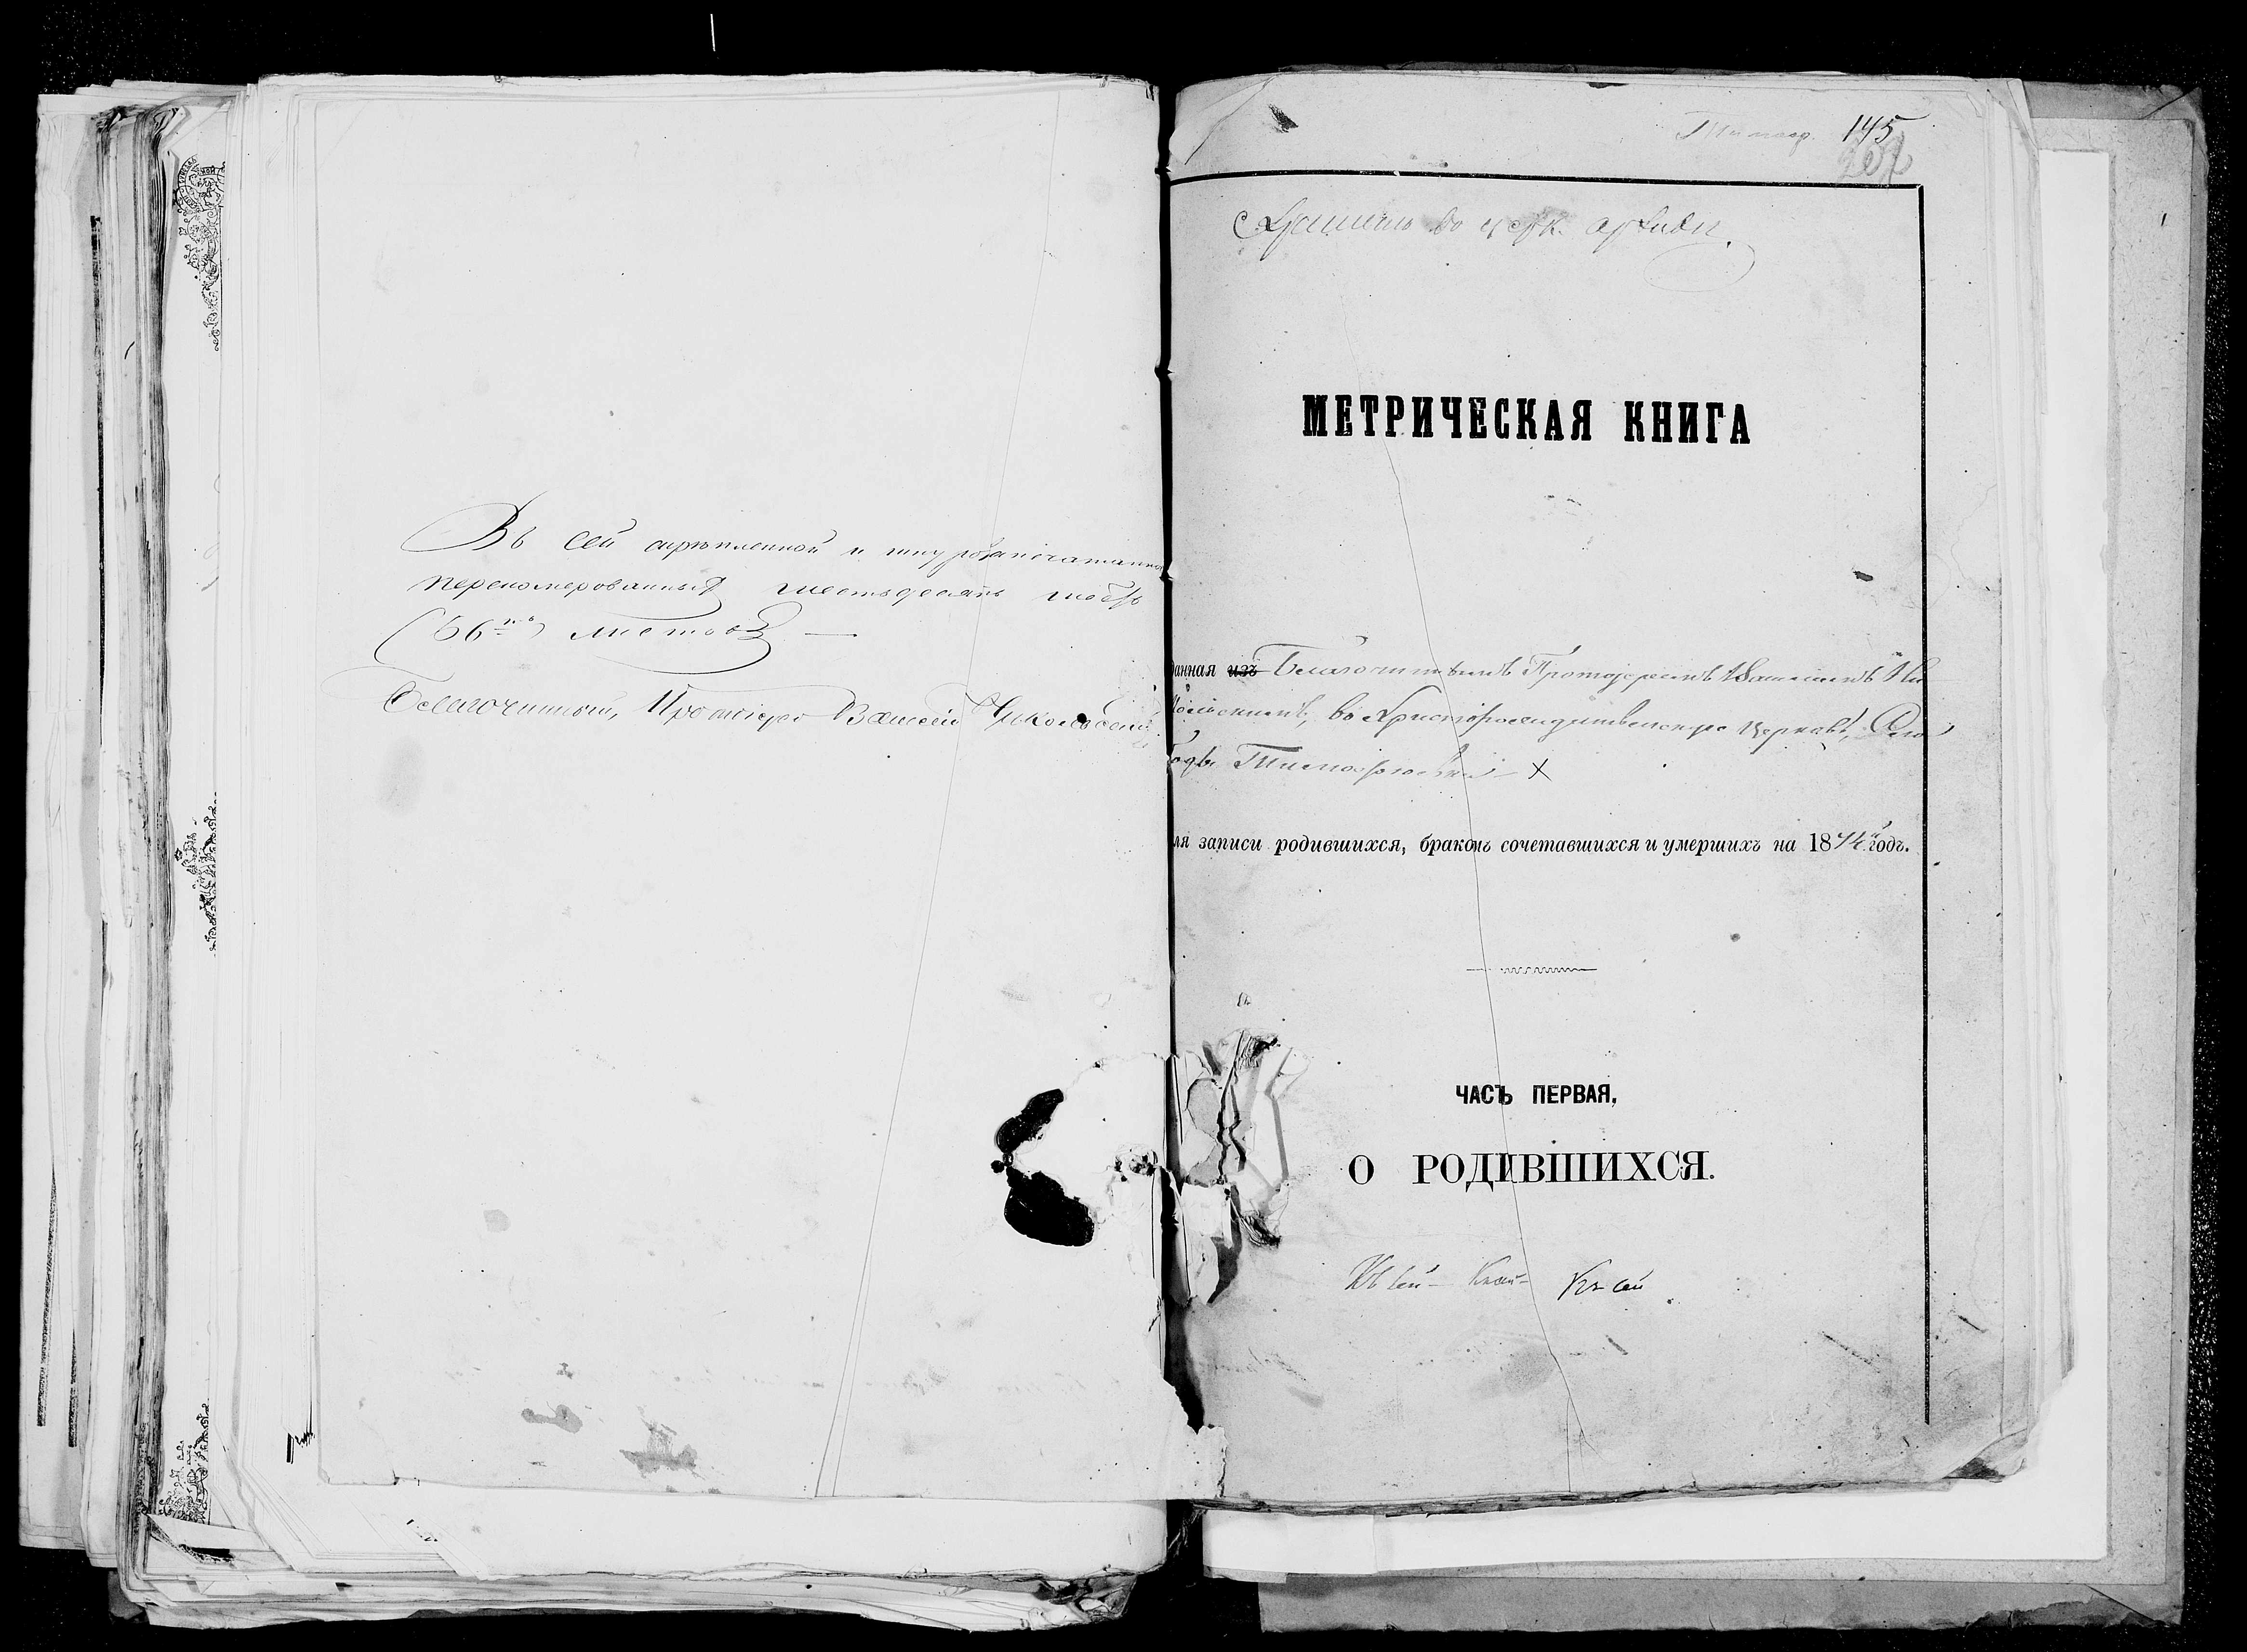 Въ сей скрѣпленной и шнурозапечатанно
перенумерованныхъ шестьдесятъ шесть
(66ть) листовъ —
Благочинный, Протоіерей Василій Никольскій
145
Хранить въ церк. архивѣ.
МЕТРИЧЕСКАЯ КНИГА
данная изъ Благочиннымъ Протоіереемъ Василіемъ Ни
кольскимъ, въ Христорождественскую Церковь, Сло
бодѣ
ля записи родившихся, бракомъ сочетавшихся и умершихъ на 1874й годъ.
ЧАСЪ ПЕРВАЯ,
О РОДИВШИХСЯ.
Къ сей